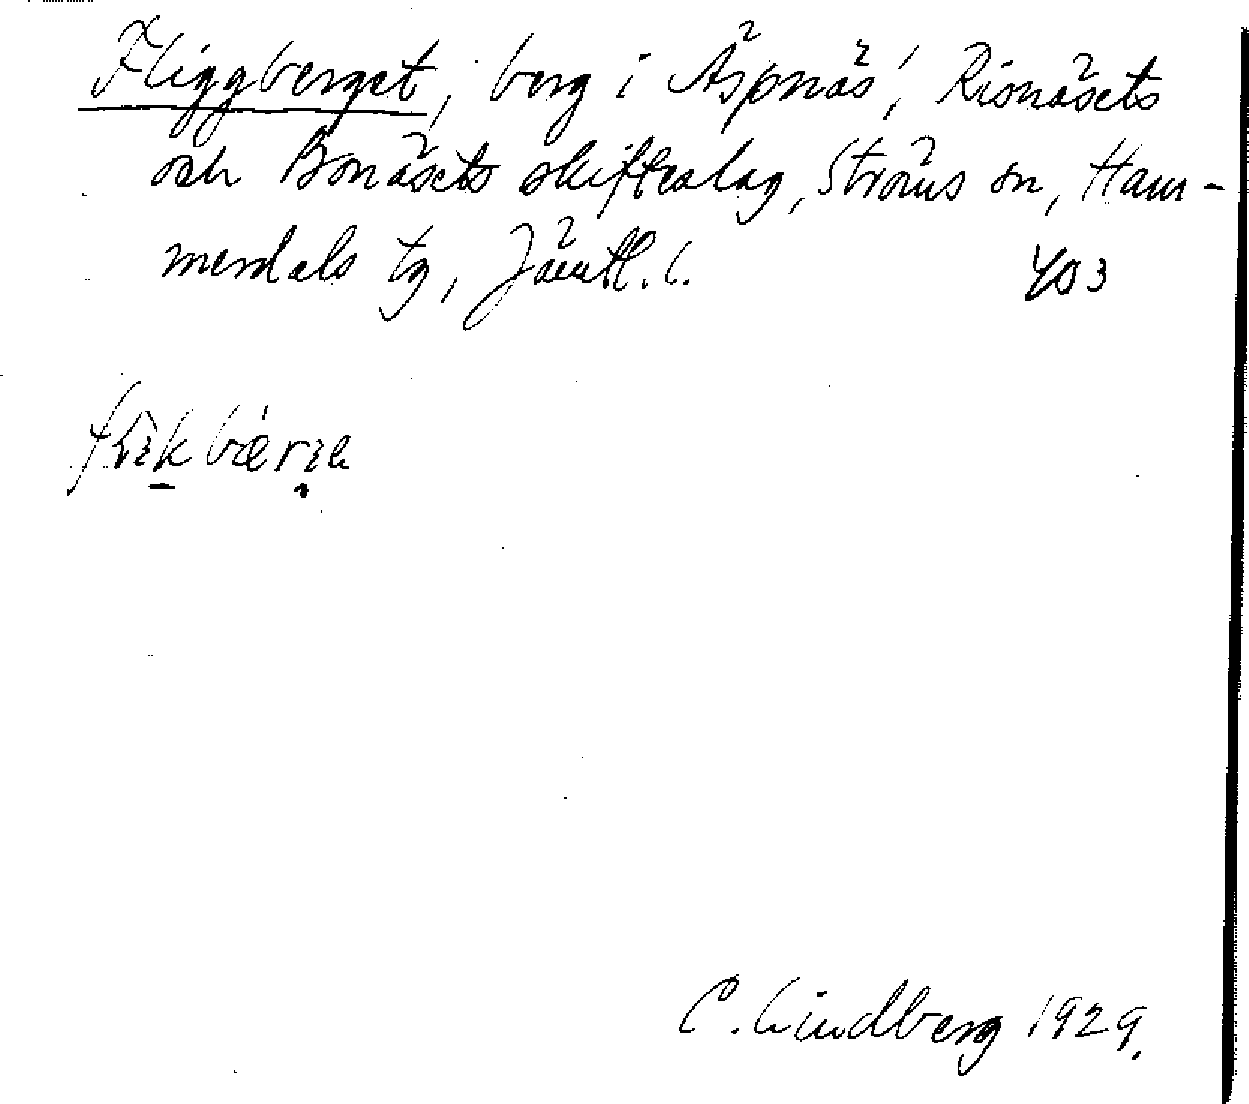 Fliggberget, berg i Äspnäs, Risnäsets
och Bonäsets skifteslag, Ströms sn, Ham-
merdals tg, Jämtl. l.
403
C. Lindberg 1929.